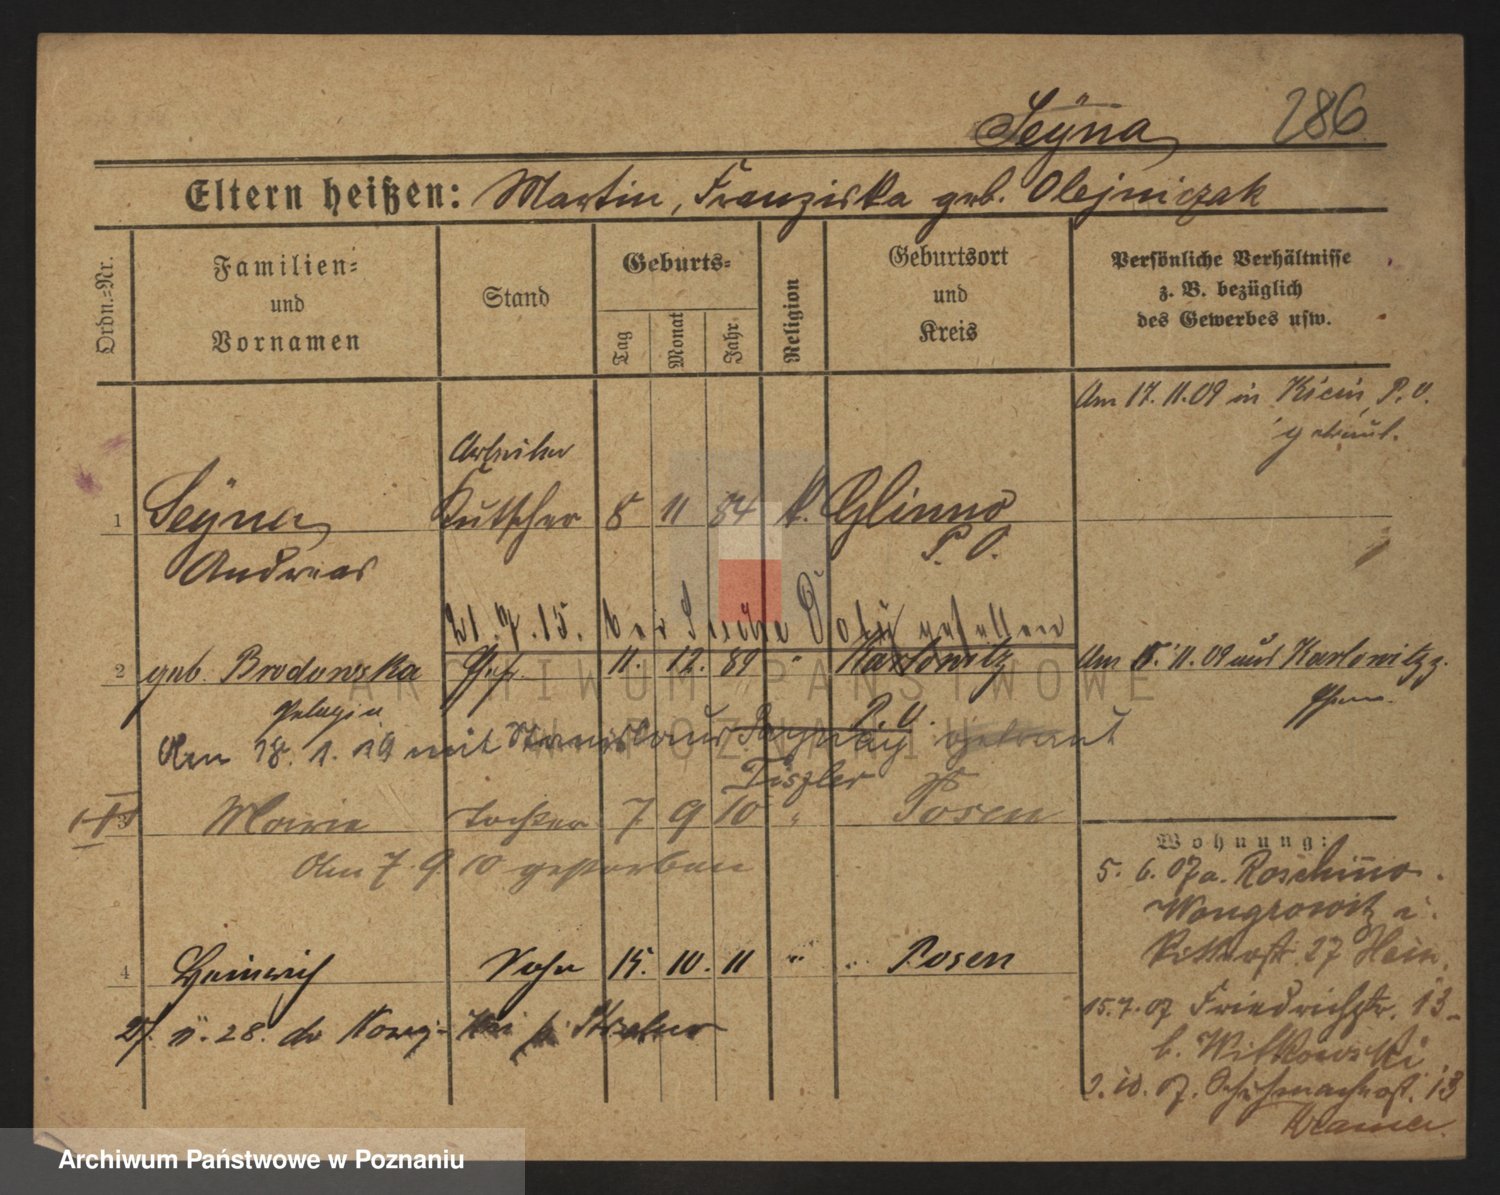 Seÿna 286
Eltern heißen: Martin, Franziska geb. Olejniczak
Ordn.=Nr.
Familien=
und
Vornamen
Stand
Geburts=
Tag
Monat
Jahr
Religion
Geburtsort
und
Kreis
Persönliche Verhältnisse
z. B. bezüglich
des Gewerbes usw.
Am 17. 11. 09 in Kicin, P. O.
getraut.
Arbeiter
1 Seÿna Kutscher 8 11 84 k. Glinno
Andreas P. O.
21. 7. 15. bei gefallen
2 geb. Brodowska Ehefr. 11. 12. 89 " Karlowitz Am 11. 09 aus Karlowitz z.
Pelagia P. O. Ehem.
Am 18. 1. 19 mit Stanislaus getraut
Tiszler
3 Marie Tochter 7 9 10 " Posen
Am 7. 9. 10 gestorben
Wohnung:
5. 6. 07 a. Roschinno
Wongrowitz
27
4 Heinrich Sohn 15. 10. 11 " Posen
15. 7. 07 Friedrichstr. 13
b. Witkowski
2. 10. 07. Schuhmacherst. 13
Kramer
ARCHIWUM PAŃSTWOWE
W POZNANIU
Archiwum Państwowe w Poznaniu